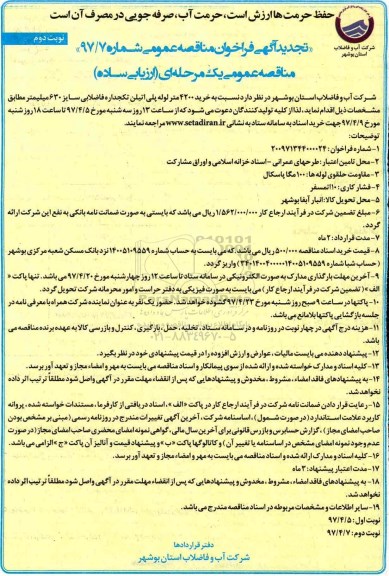 حفظ حرمت ها ارزش است، حرمت آب، صرفه جویی در مصرف آن است
شرکت آب و فاضلاب
استان بوشهر
نوبت دوم
«تجدید آگهی فراخوان مناقصه عمومی شماره ۹۷/۷»
مناقصه عمومی یک مرحله‌ای (ارزیابی ساده)
شرکت آب و فاضلاب استان بوشهر در نظر دارد نسبت به خرید ۴۲۰۰ متر لوله پلی اتیلن تکجداره فاضلابی سایز ۶۳۰ میلیمتر مطابق
مشخصات ذیل اقدام نماید. لذا از کلیه تولید کنندگان دعوت می‌شود که از ساعت ۱۳ روز سه شنبه مورخ ۹۷/۴/۵ تا ساعت ۱۸ روز شنبه
مورخ ۹۷/۴/۹ جهت خرید اسناد به سامانه ستاد به نشانی www.setadiran.ir مراجعه نمایند.
توضیحات:
۱- شماره فراخوان: ۲۰۰۹۷۱۳۴۴۰۰۰۰۲۴
۲- محل تامین اعتبار: طرحهای عمرانی - اسناد خزانه اسلامی و اوراق مشارکت
۳- مقاومت حلقوی لوله ها: ۱۰۰ مگا پاسکال
۴- فشار کاری: ۱۰ اتمسفر
۵- محل تحویل کالا: انبار آبفا بوشهر
۶- مبلغ تضمین شرکت در فرآیند ارجاع کار ۱/۵۶۲/۰۰۰/۰۰۰ ریال می باشد که بایستی به صورت ضمانت نامه بانکی به نفع این شرکت ارائه
گردد.
۷- مدت قرارداد: ۲ ماه
۸- قیمت خرید اسناد مناقصه ۵۰۰/۰۰۰ ریال می باشد که می بایست به حساب شماره ۱۴۰۰۵۱۰۹۵۵۹ نزد بانک مسکن شعبه مرکزی بوشهر
واریز گردد.
۹- آخرین مهلت بارگذاری مدارک به صورت الکترونیکی در سامانه ستاد تا ساعت ۱۲ روز چهارشنبه مورخ ۹۷/۴/۲۰ می باشد. تنها پاکت «
الف» (تضمین شرکت در فرآیند ارجاع کار) می بایست به صورت فیزیکی به دفتر حراست و امور محرمانه شرکت تحویل گردد.
۱۰- پاکتها در ساعت ۹ صبح روز شنبه مورخ ۹۷/۴/۲۳ گشوده خواهد شد. حضور یک نفر به عنوان نماینده شرکت همراه با معرفی نامه در
جلسه بازگشایی پاکتها بلامانع می باشد.
۱۱- هزینه درج آگهی در چهار نوبت در روزنامه و در سامانه ستاد، تخلیه، حمل، بارگیری، کنترل و بازرسی کالا به عهده برنده مناقصه می
باشد.
۱۲- پیشنهاد دهنده می بایست مالیات، عوارض و ارزش افزوده را در قیمت پیشنهادی خود در نظر بگیرد.
۱۳- کلیه اسناد و مدارک خواسته شده و ارائه شده از سوی پیمانکار و اسناد مناقصه می بایست به مهر و امضاء مجاز و تعهد آور برسد.
۱۴- به پیشنهادهای فاقد امضاء، مشروط، مخدوش و پیشنهادهایی که پس از انقضاء مهلت مقرر در آگهی واصل شود مطلقاً ترتیب اثر داده
نخواهد شد.
۱۵- رعایت قرار دادن ضمانت نامه شرکت در فرآیند ارجاع کار در پاکت «الف»، اسناد دریافتی از کارفرما، مستندات خواسته شده، پروانه
کاربرد علامت استاندارد (در صورت شمول)، اساسنامه شرکت، آخرین آگهی تغییرات مندرج در روزنامه رسمی (مبنی بر مشخص بودن
صاحب امضاء مجاز)، گزارش حسابرس و بازرس قانونی برای آخرین سال مالی، گواهی نمونه امضای محضری صاحب امضای مجاز (در صورت
عدم وجود نمونه امضای مشخص در اساسنامه یا تغییر آن) و کاتالوگها پاکت «ب» و پیشنهاد قیمت و آنالیز آن پاکت «ج» الزامی می باشد.
۱۶- کلیه اسناد و مدارک ارائه شده و اسناد مناقصه می بایست به مهر و امضاء مجاز و تعهد آور برسد.
۱۷- مدت اعتبار پیشنهاد: ۳ ماه
۱۸- به پیشنهادهای فاقد امضاء، مشروط، مخدوش و پیشنهادهایی که پس از انقضاء مهلت مقرر در آگهی واصل شود مطلقاً ترتیب اثر داده
نخواهد شد.
۱۹- سایر اطلاعات و مشخصات مربوطه در اسناد مناقصه مندرج می باشد.
نوبت اول: ۹۷/۴/۵
نوبت دوم: ۹۷/۴/۷
دفتر قراردادها
شرکت آب و فاضلاب استان بوشهر